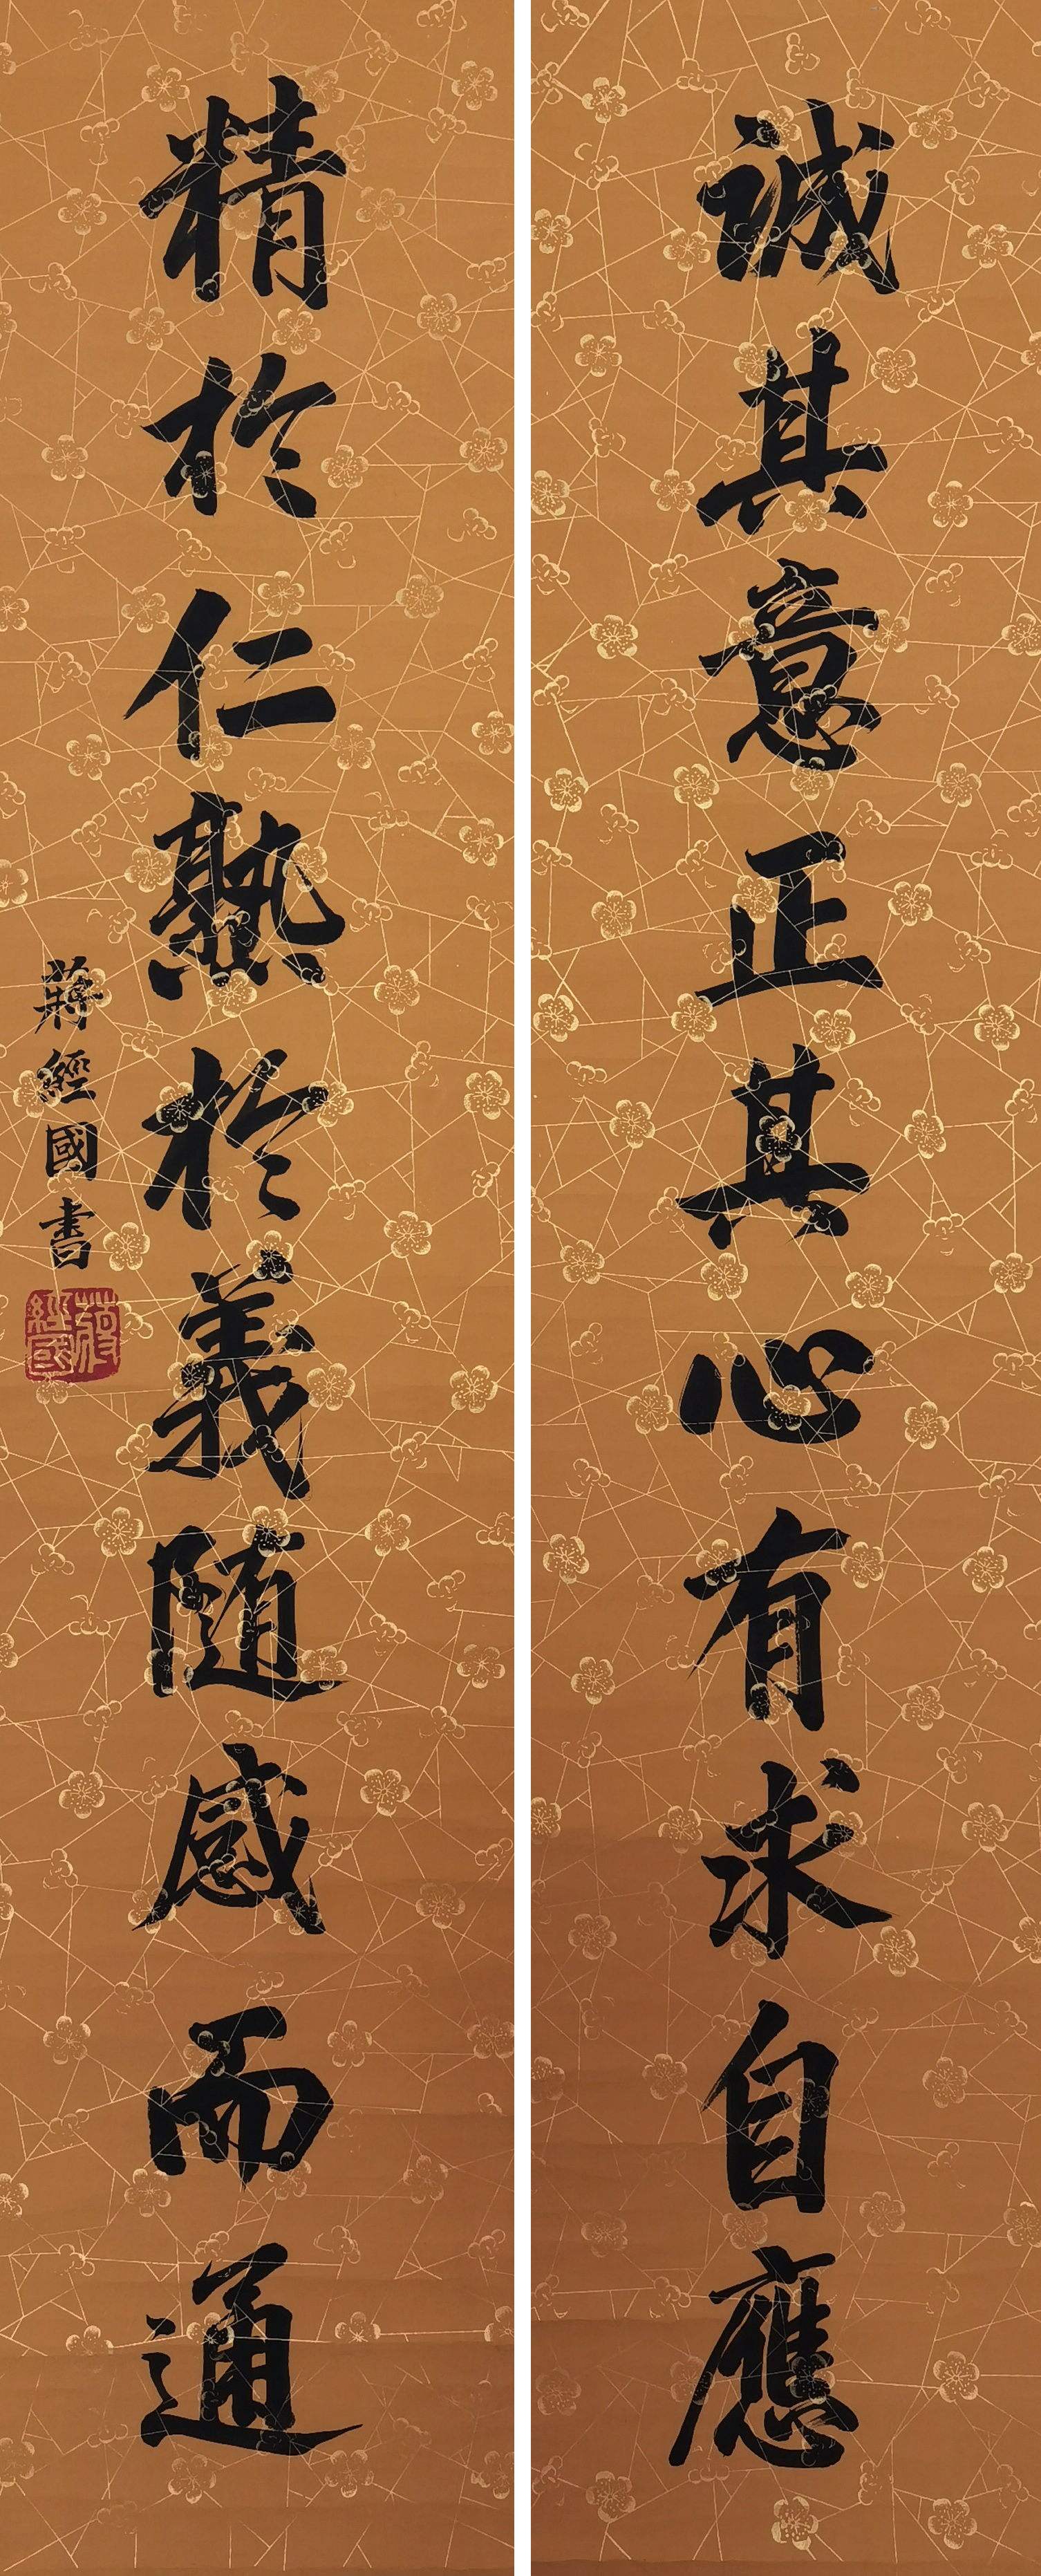 誠其意正其心有求自應
精於仁熟於義随感而通
蔣經國書
蔣經國